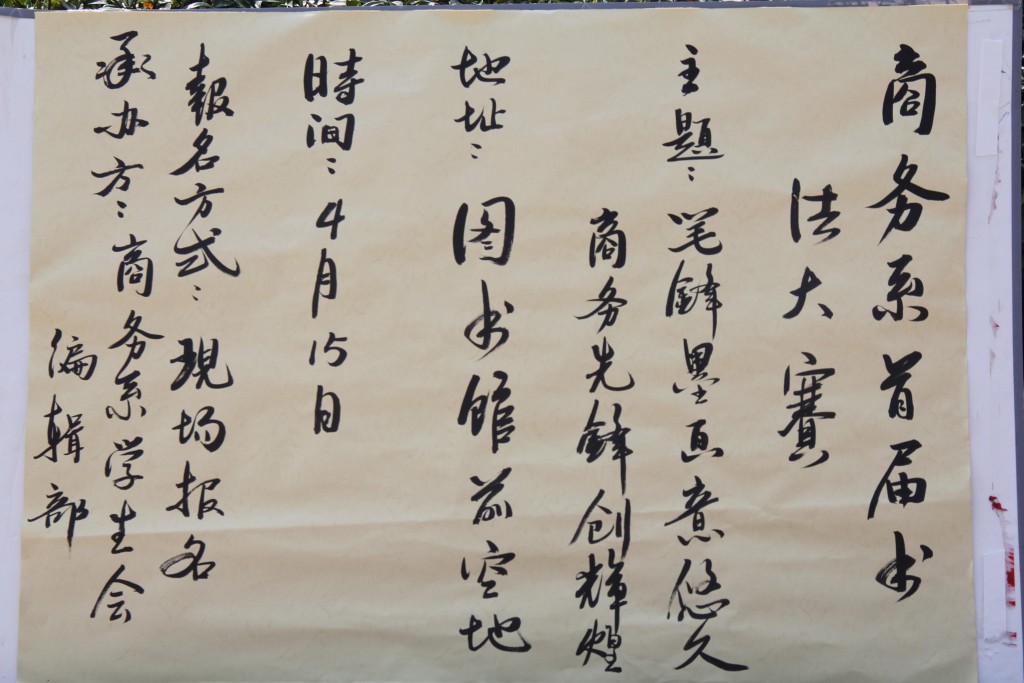 商务系首届书
法大賽
主题：笔鋒墨画意悠久
商务先鋒创輝煌
地址：图书館前空地
時间：4月15日
報名方式：現场报名
承办方：商务系学生会
编輯部